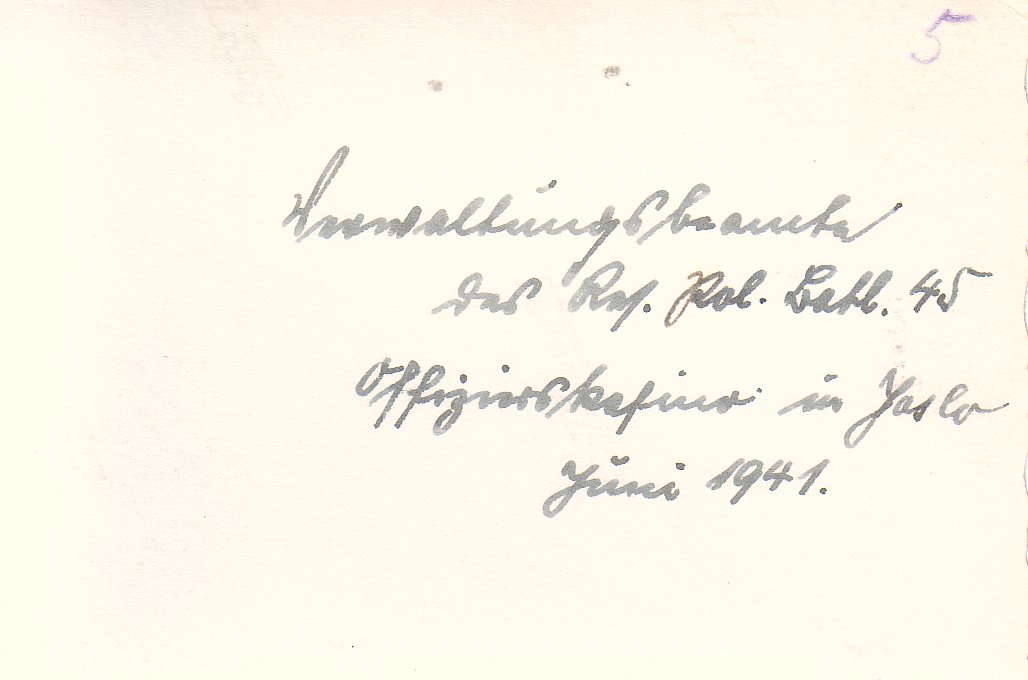 5
Verwaltungsbeamte
des Res. Pol. Batl. 45
Offizierskasino in Jaslo
Juni 1941.